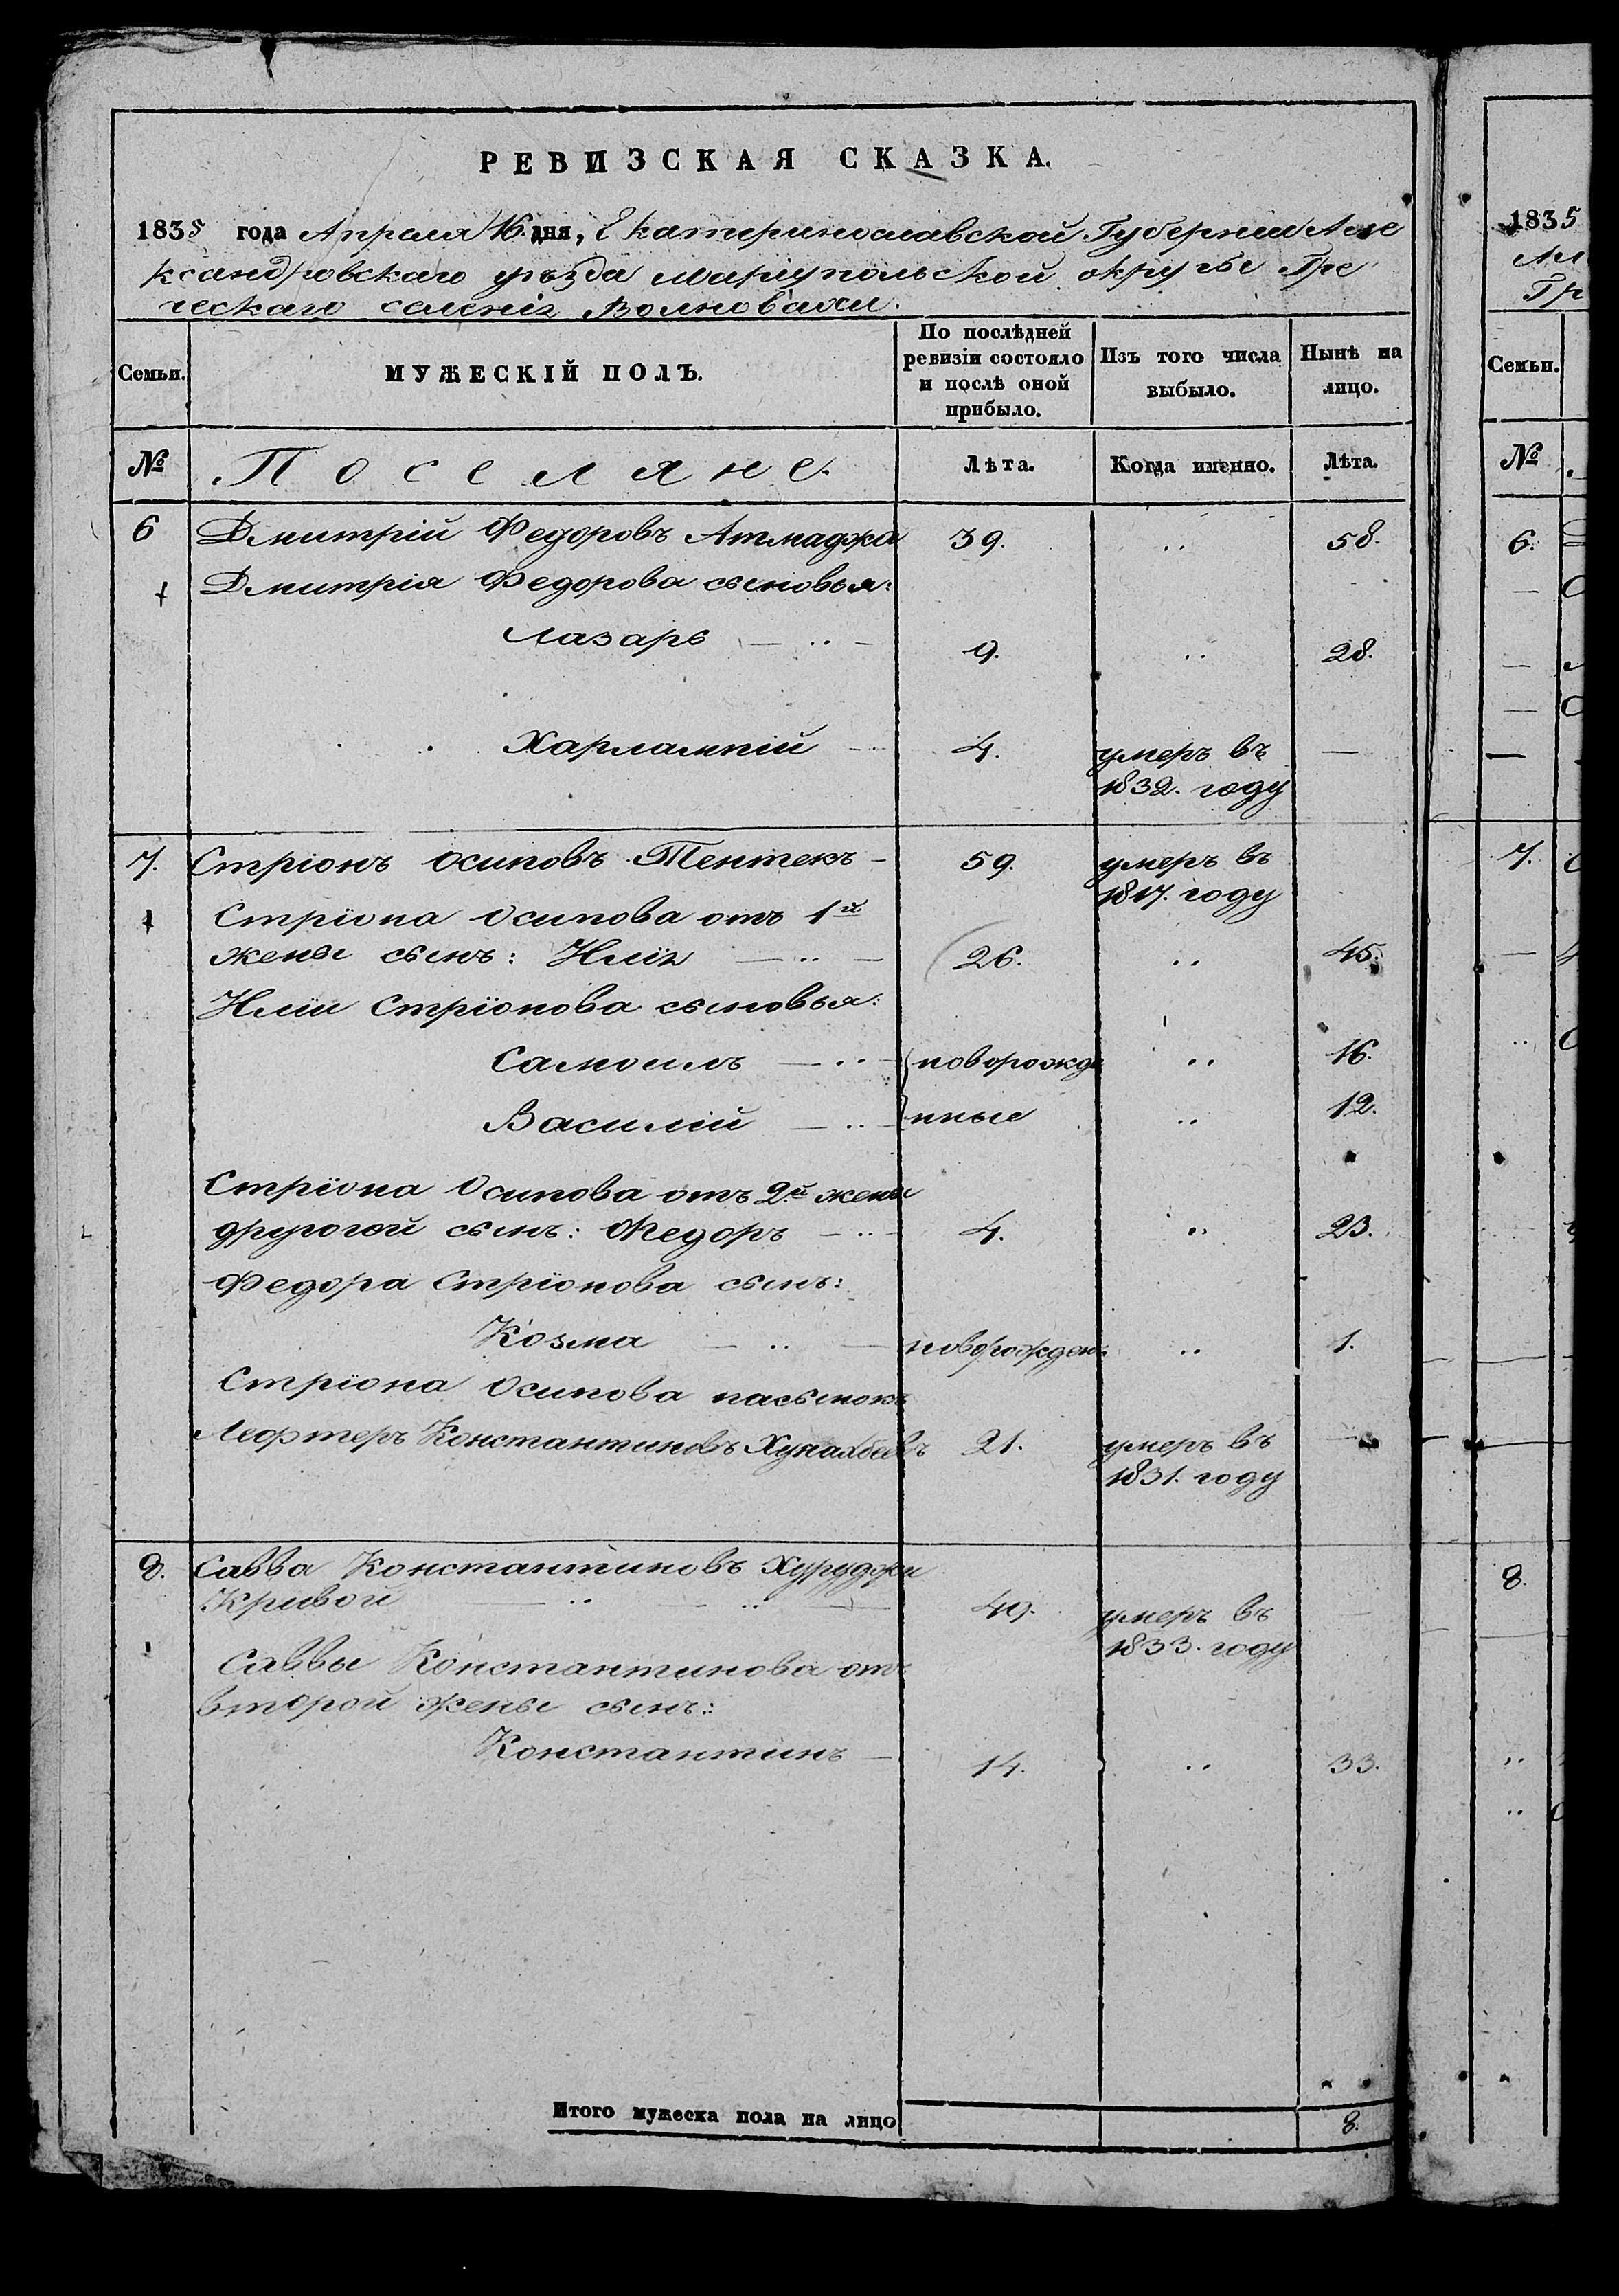 РЕВИЗСКАЯ СКАЗКА.
1835 года Апреля 16. дня, Екатеринославской Губернии Але
ксандровскаго уѣзда Маріупольской округѣ Гре
ческаго селенія Волновахи.
Семьи. МУЖЕСКІЙ ПОЛЪ. По послѣдней ревизіи состояло и послѣ оной прибыло. Изъ того числа выбыло. Нынѣ на лицо.
№ Поселяне. Лѣта. Когда именно. Лѣта.
6 Дмитрій Федоровъ Атмаджа 39. .. 58.
Дмитрія Федорова сыновья:
Лазарь — .. — 9. .. 28.
Харлампій — 4. умеръ въ —
1832. году
7. Стріонъ Осиповъ Тентекъ — 59. умеръ въ
1817. году
Стріона Осипова отъ 1й
жены сынъ: Илія — .. — 26. .. 45.
Иліи Стріонова сыновья:
Самоилъ — .. — новорожде .. 16.
Василій — .. — нные .. 12.
Стріона Осипова отъ 2.й жены
другогой сынъ: Федоръ — .. — 4. .. 23.
Федора Стріонова сынъ:
Козма — .. — новорожден. .. 1.
Стріона Осипова пасынокъ
Лефтеръ Константиновъ 21. умеръ въ —
1831. году
8. Савва Константиновъ Хуруджи
Кривой — .. — .. — 49. умеръ въ —
1833. году
Саввы Константинова отъ
второй жены сынъ:
Константинъ — 14. .. 33.
Итого мужеска пола на лицо 8.
1835
Ал
Гр
Семьи.
№
6.
7.
8.